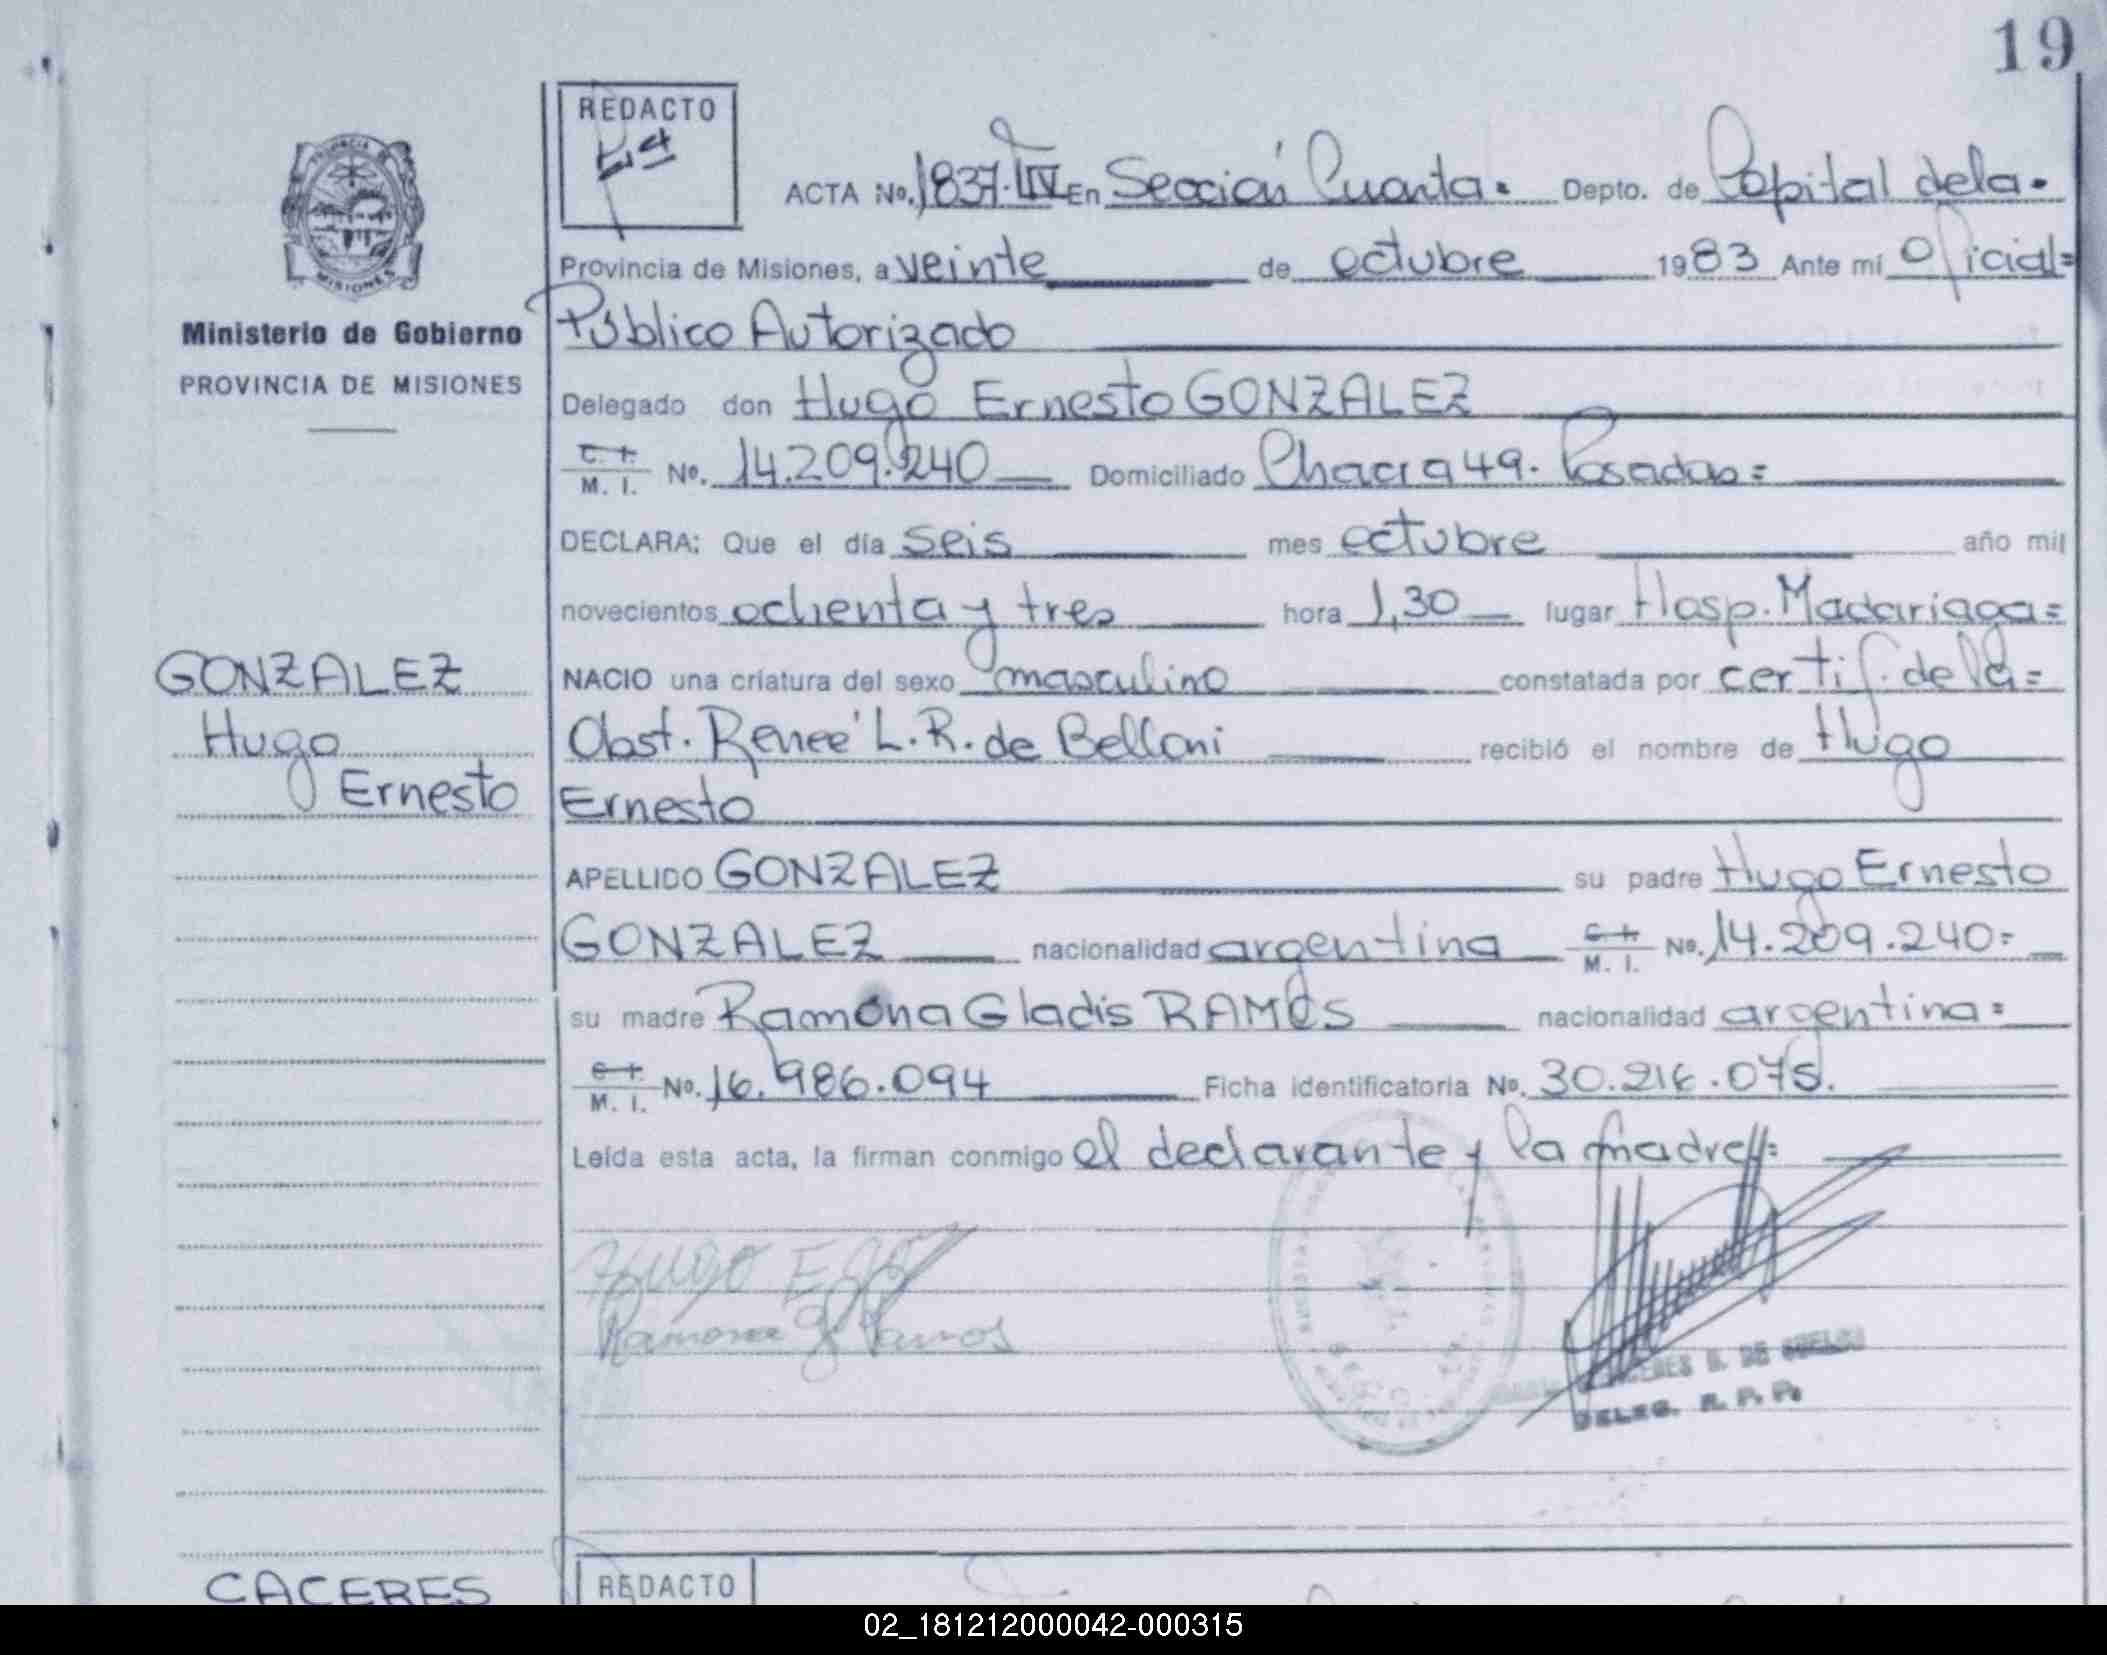 19
REDACTO
ACTA No. 1837-T.IV En Sección Cuarta. Depto. de Capital de la.
PROVINCIA DE
MISIONES
Provincia de Misiones, a veinte de octubre 1983 Ante mí Oficial=
Ministerio de Gobierno
Público Autorizado
PROVINCIA DE MISIONES
Delegado don Hugo Ernesto GONZALEZ
C. I.
M. I. No. 14.209.240 Domiciliado Chacra 49. Posadas=
DECLARA: Que el día seis mes octubre año mil
novecientos ochenta y tres hora 1,30 lugar Hosp. Madariaga=
GONZALEZ
NACIO una criatura del sexo masculino constatada por certif. de la=
Hugo
Obst. Reneé L. R. de Belloni recibió el nombre de Hugo
Ernesto
Ernesto
APELLIDO GONZALEZ su padre Hugo Ernesto
GONZALEZ nacionalidad argentina C. I.
M. I. No. 14.209.240=
su madre Ramona Gladis RAMOS nacionalidad argentina=
C. I.
M. I. No. 16.986.094 Ficha identificatoria No. 30.216.075.
Leída esta acta, la firman conmigo el declarante y la madre=
Hugo E
Ramona G Ramos
DE
DELEG. R. P. P.
CACERES
REDACTO
02_181212000042-000315